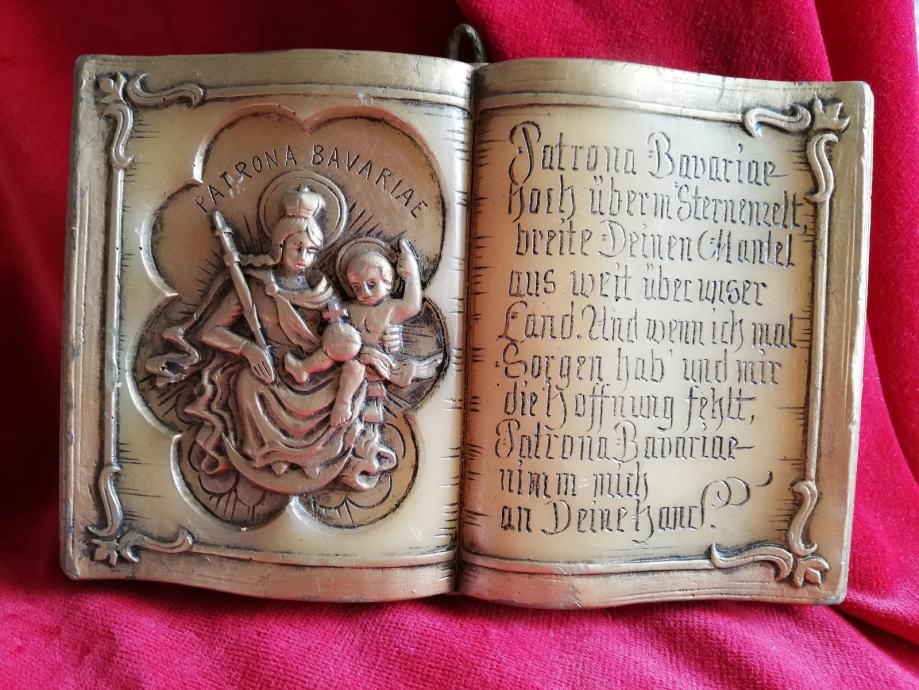 PATRONA BAVARIAE
Patrona Bavariae
hoch überm Sternenzelt,
breite Deinen Mantel
aus weit über unser
Land. Und wenn ich mal
Sorgen hab' und mir
die Hoffnung fehlt,
Patrona Bavariae
nimm mich
an Deine Hand.